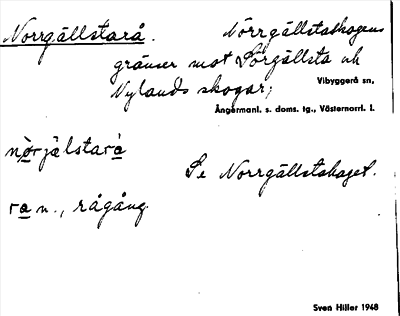 Norrgällstarå. Norrgällstaskogens
gränser mot Sörgällsta och
Nylands skogar;
Vibyggerå sn,
Ångermanl. s. doms. tg., Västernorrl. l.
nòrjälstarà
Se Norrgällstaskaget.
ra n., rågång
Sven Hiller 1948